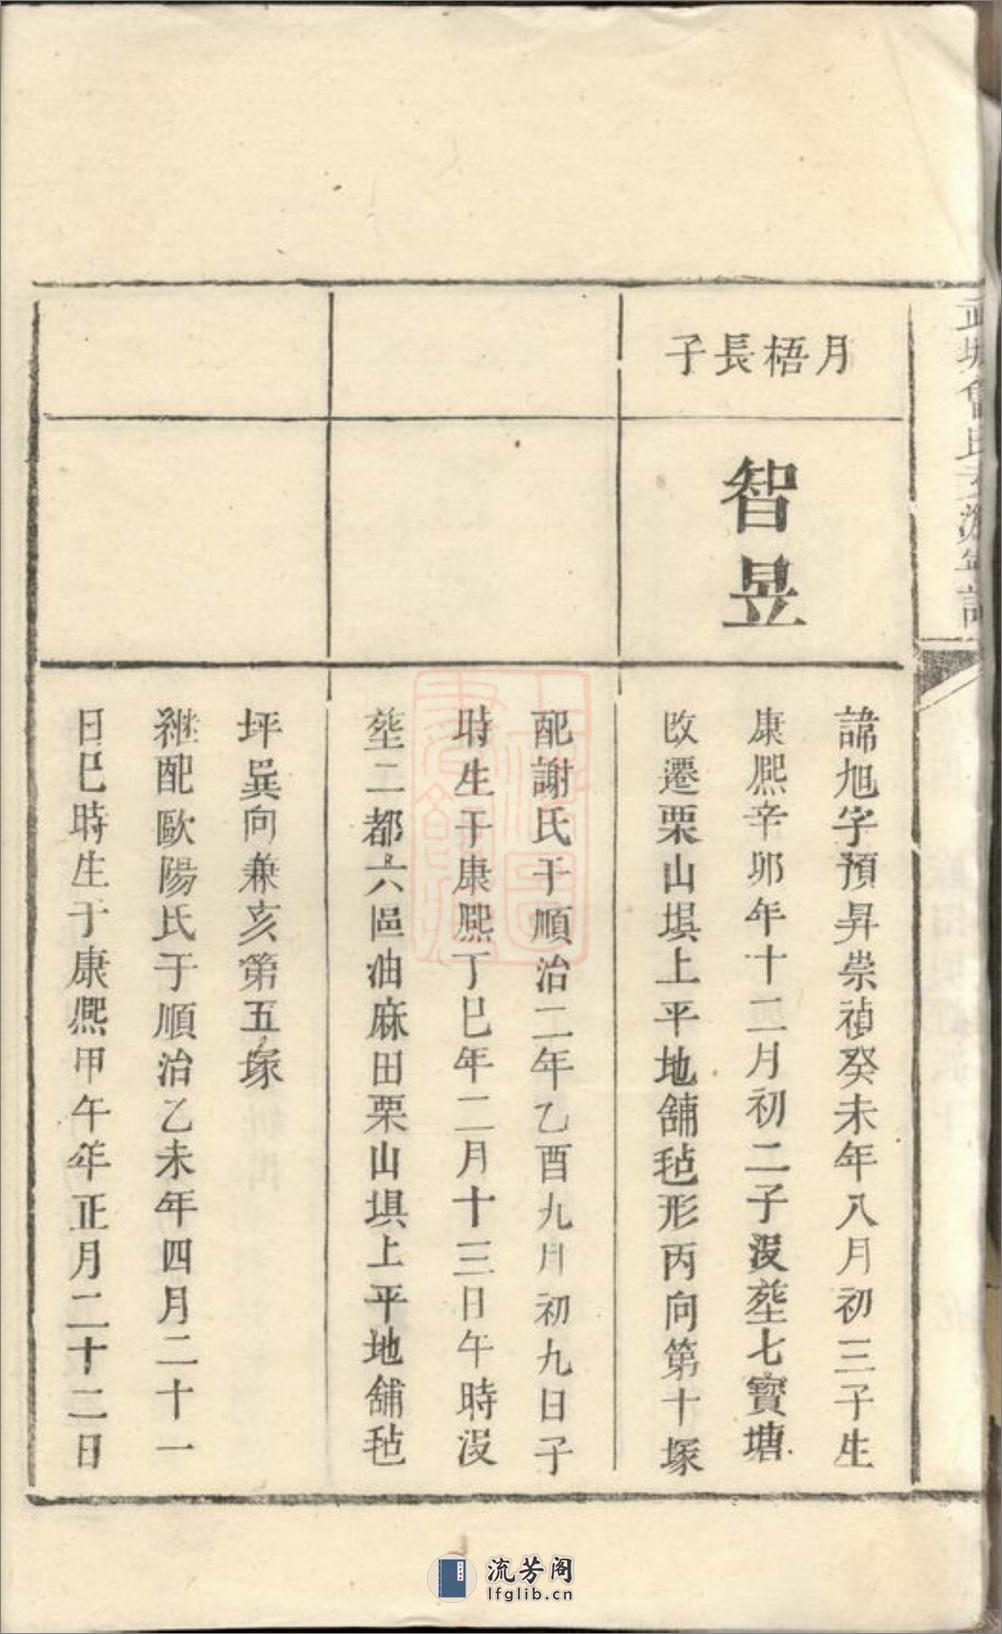 月梧長子
智昱
諱旭字預昇崇禎癸未年八月初三子生
康熙辛卯年十二月初二子沒塟七寶塘
改遷栗山塤上平地舖毡形丙向第十塚
配謝氏于順治二年乙酉九月初九日子
時生于康熙丁巳年二月十三日午時沒
塟二都六區油麻田栗山塤上平地舖毡
坪巽向兼亥第五塚
継配歐陽氏于順治乙未年四月二十一
日巳時生于康熙甲午年正月二十二日
流芳阁
lfglib.cn